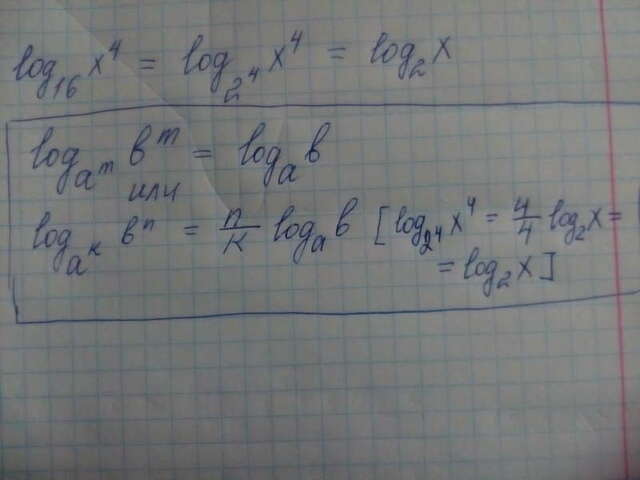 log₁₆ x⁴ = log_{2⁴} x⁴ = log₂ x
log_{a^m} b^m = log_a b
или
log_{a^k} b^n = n/k log_a b [log_{2⁴} x⁴ = 4/4 log₂ x =
= log₂ x]